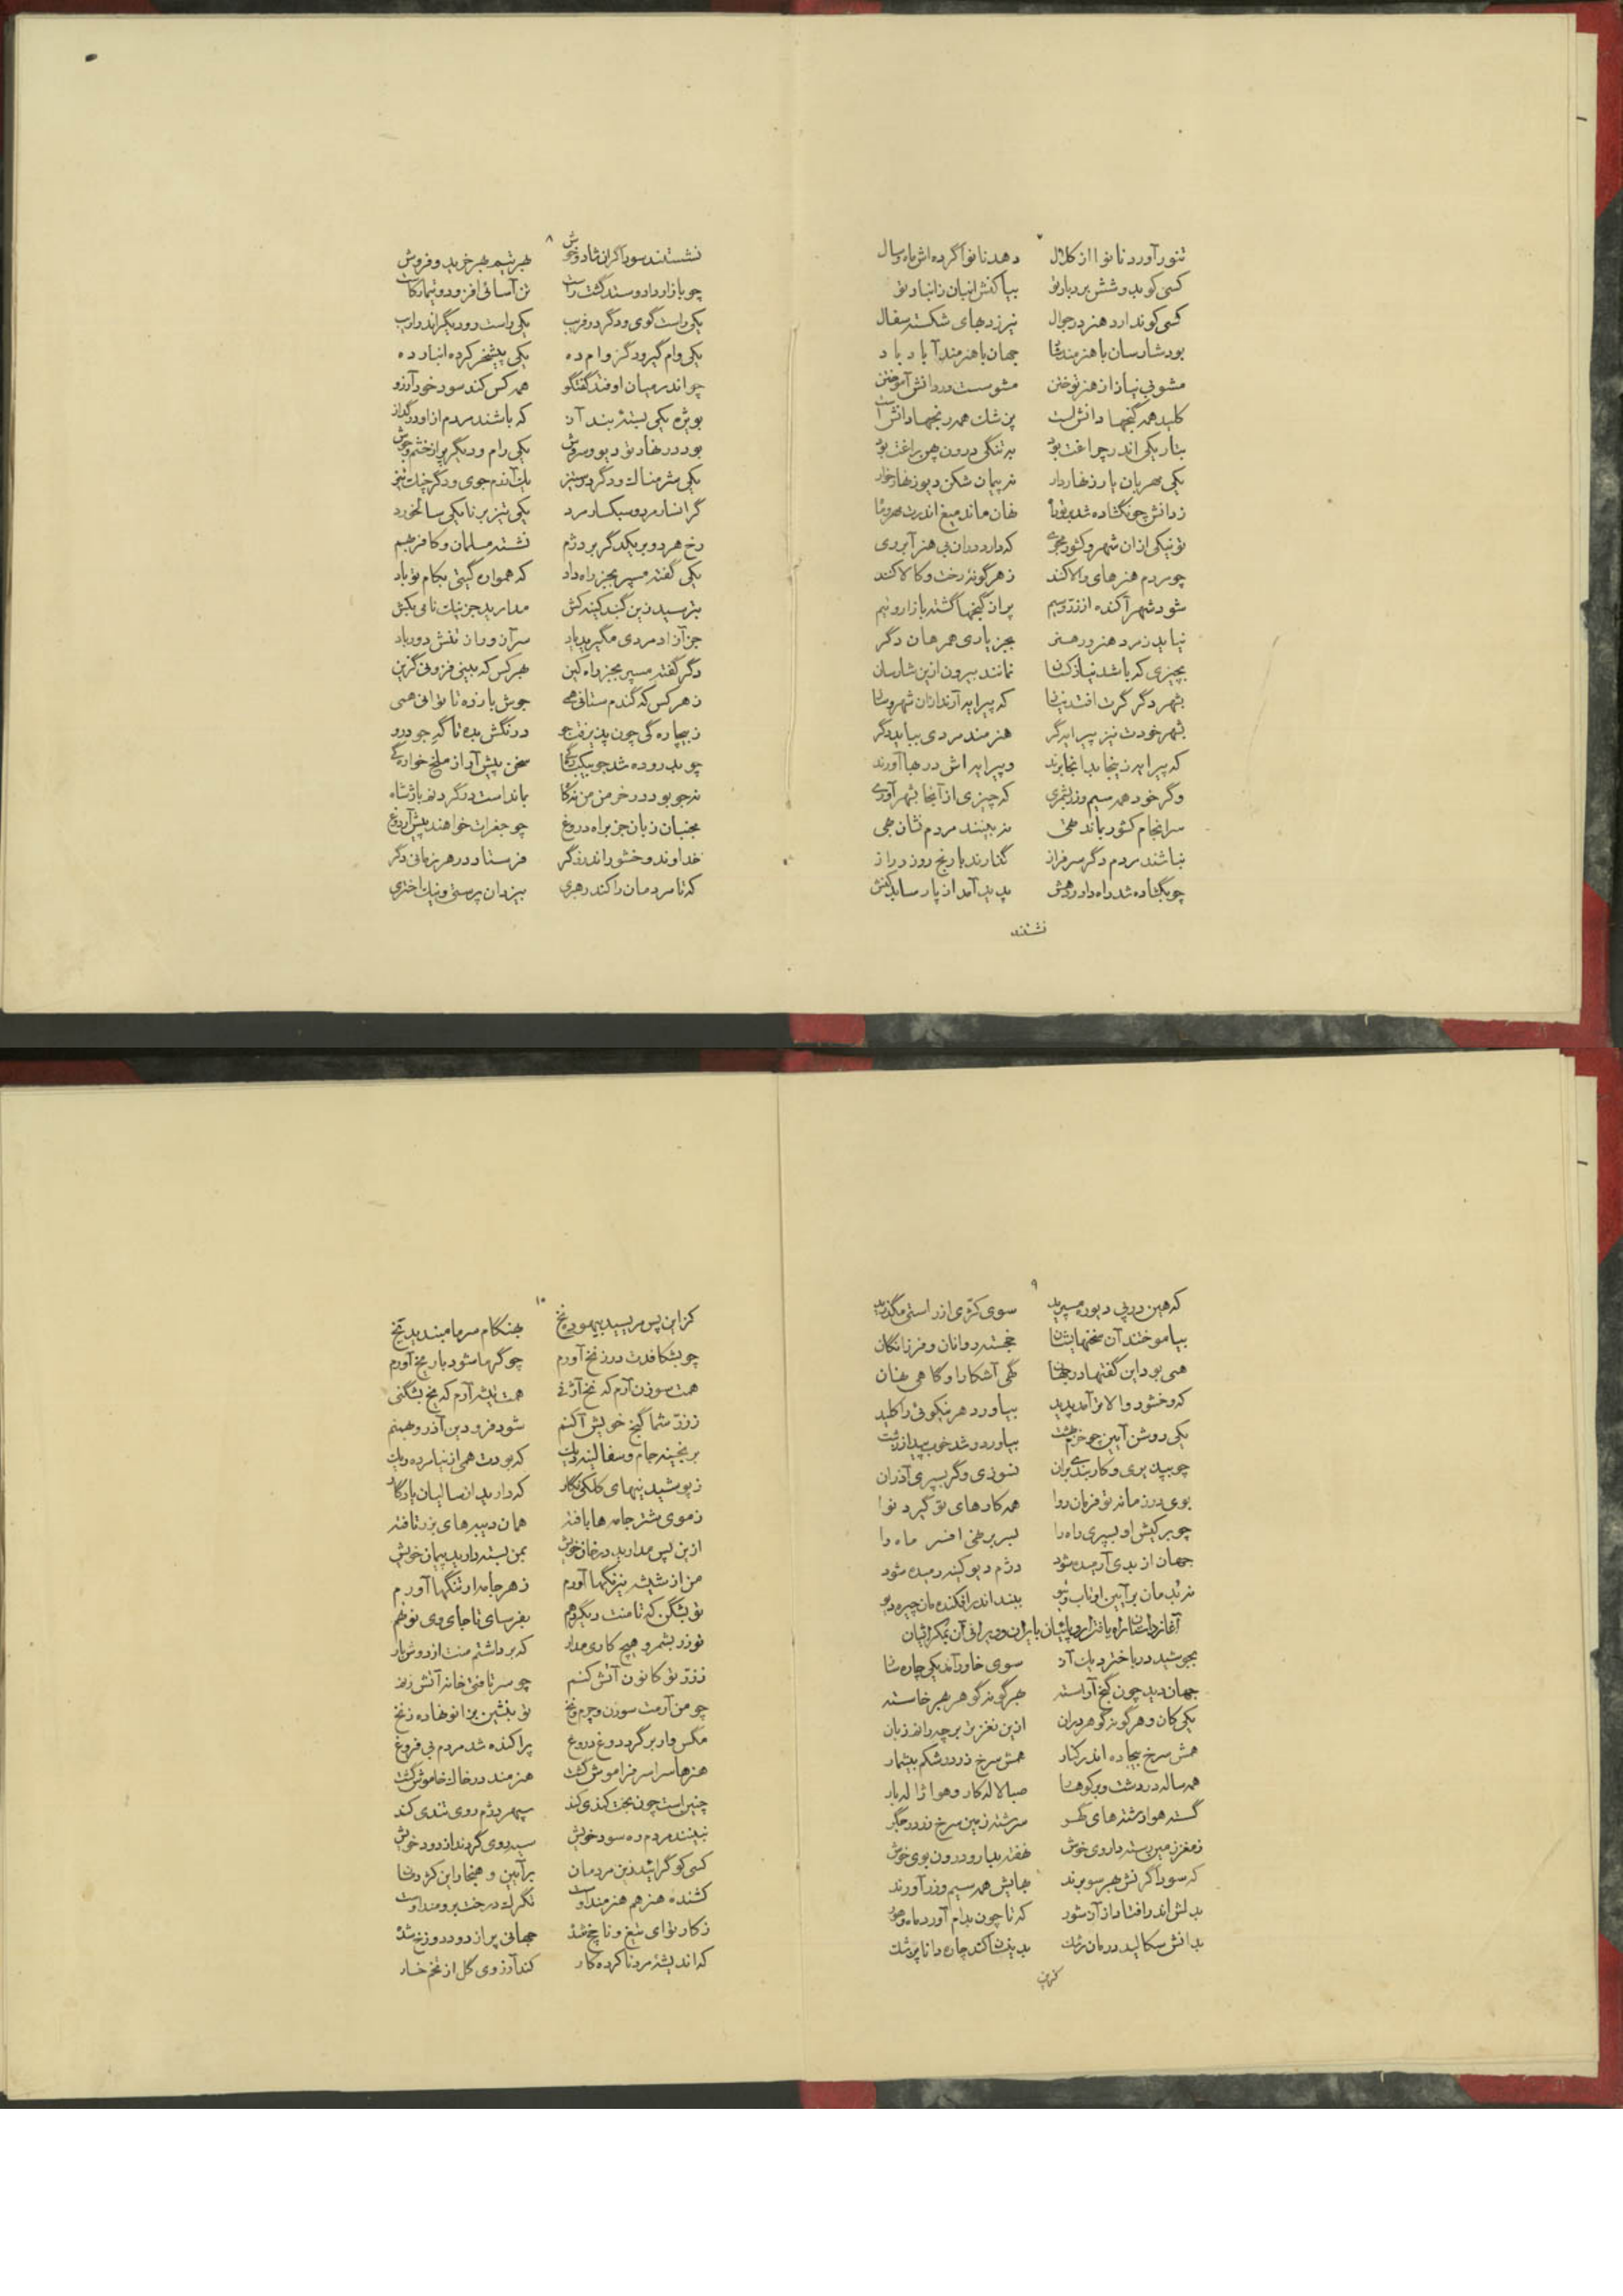 ۷
تنور آورد نانوا از کلال دهد نانوا گرده اش ماه و سال
کسی کو بد و شش برد بار تو بیا کنش انبان ز انبار تو
کسی کو ندارد هنر در جوال نیرزد بهای شکسته سفال
بود شارسان با هنرمند شاد جهان با هنرمند آباد باد
مشو بی نیاز از هنر توختن مشو سست در دانش آموختن
کلید همه گنجها دانش است پزشک همه رنجها دانش است
بتاریکی اندر چراغت بود به تنگی درون چون براغت بود
یکی مهربان یار زنهاردار نه پیمان شکن دیو زنهارخوار
ز دانش چو نگشاده شد بر تو راه نهان ماند میغ اندرت مهر و ماه
تو نیکی ازان شهر و کشور مجوی که دارد دران بی هنر آبروی
چو مردم هنرهای والا کند ز هر گونه رخت و کالا کند
شود شهر آکنده از زر و سیم پر از گنجها گشته بازار و تیم
نیاید ز مرد هنرور هنر بجز یاری همرهان دگر
بچیزی که باشد نیازکسان نمانند بیرون ازین شارسان
بشهر دگر گرت افتد نیاز که پیرایه آرند ازان شهر و ساز
بشهر خودت نیز پیرایه گر هنرمند مردی بباید دگر
که پیرایه زینجا بدانجا برند و پیرایه اش در بها آورند
وگر خود همه سیم و زر بشمری که چیزی از آنجا بشهر آوری
سرانجام کشور بماند تهی نه بینند مردم نشان بهی
نباشند مردم دگر سرفراز گذارند با رنج روز دراز
چو بگشاده شد راه داد و دهش پدید آمد از پارسا بدکنش
نشستند
۸
نشستند سوداگران شاد و خوش بهر تیم بهر خرید و فروش
چو بازار داد و ستد گشت راست تن آسانی افزود و تیمار کاست
یکی راست گوی و دگر در فریب یکی راست رو دیگر اندر اریب
یکی وام گیر و دگر وام ده یکی پیشخر کرده انبار ده
چو اندر میان اوفتد گفتگو همه کس کند سود خود آرزو
بویژه یکی بسته بند آز که باشند مردم ازو در گداز
بود در نهاد تو دیو و سروش یکی رام و دیگر پر از خشم و جوش
یکی شرمناک و دگر پرستیز یک آزرم جوی و دگر چنگ تیز
گرانسار مرد و سبکسار مرد یکی تیز برنا یکی سالخورد
رخ هر دو بر یکدگر بر دژم نشسته مسلمان و کافر بهم
یکی گفته مسپر بجز راه داد که همواره گیتی بکام تو باد
بترسید زین گنبد کینه کش مدارید جز نیک نامی بکش
جز آزاد مردی مگیرید یاد سر آز و راز نفش دور باد
دگر گفته مسپر بجز راه کین بهر کس که بینی فزونی گزین
ز هر کس که گندم ستانی همی جوش باز ده تا توانی همی
ز بیچاره گی چون پذیرفت جو درنگش بده تا گه جو درو
چو بدروده شد جو بیکبارگی سخن پیش آر از ملخ خوارگی
نه جو بود در خرمن من نه کاه بمانداست در گردنم باژ شاه
بجنبان زبان جز براه دروغ چو جغرات خواهند پیش آر دوغ
خداوند وخشور اندرزگر فرستاد در هر زمانی دگر
که تا مردمان را کند رهبری بیزدان پرستی و نیک اختری
۹
که هین در پی دیو ره مسپرید سوی کژی از راستی مگذرید
بیاموختند آن سخنها بشان خجسته روانان و فرزانگان
همی بود این گفتها در جهان گهی آشکارا و گاهی نهان
که وخشور والاتر آمد پدید بیاورد هر نیکوئی را کلید
یکی روشن آیین چو خرم بهشت بیاورد و شد خوب پیدا ز زشت
چو بپذیری و کار بندی بران نسوزی وگر بسپری آذران
بوی در زمانه تو فرمان روا همه کارهای تو گیرد نوا
چو بر کیش او بسپری راه را بسر بر نهی افسر ماه را
جهان از بدی آرمیده شود دژم دیو کینه رمیده شود
نه بدمان بر آیین او تاب و تیو ببند اندر افکنده مان چیره دیو
آغاز داستان راه یافتن اروپائیان بایران و ویرانی آن بمکر ایشان
بجوشید در باختر دیک آز سوی خاور آمد یکی چاره ساز
جهان دید چون گنج آراسته بهر گونه گوهر بهر خاسته
یکی کان و هر گونه گوهر دران ازین نغز تر برچه راند زبان
همش سرخ بیجاده اندر کنار همش سرخ زر در شکم بیشمار
همه ساله در دشت و بر کوهسار صبا لاله کار و هوا ژاله بار
گسته هوا رشته های گهر سرشته زمین سرخ زر در جگر
ز مغز زمین رسته داروی خوش نهفته بدار و درون بوی خوش
که سوداگرنش بهر سو برند بهایش همه سیم و زر آورند
بدلش اندر افتاد از آز شور که تا چون بدام آورد ماه و هور
بدانش سگالید درمان رشک بدینسان کند چاره دانا پزشک
کزین
۱۰
کزین پس مریسید بیهوده نخ بهنگام سرما مبندید یخ
چو بشکافدت درز نخ آورم چو گرما شود بار یخ آورم
همت سوزن آرم که نخ آژنی همت تیشه آرم که یخ بشکنی
ز زرّ شما گنج خویش آکنم شود فرودین آذر و بهمنم
برنجینه جام و سفالینه دیک که بودت همی از نیا مرده ریک
ز پوشیدنیهای کلکی نگار که دارید از سالیان یادگار
ز موی شتر جامه ها بافته همان دیبه های بزر تافته
ازین پس مدارید در خان خویش بمن بسته دارید پیمان خویش
من از شیشه نیرنگها آورم ز هر جامه ارتنگها آورم
تو بشکن که تا منت دیگر دهم بفرسای تا جای وی نو نهم
تو زر بشمر و هیچ کاری مدار که برداشتم منت از دوش بار
ز زرّ تو کانون آتش کنم چو سر تافتی خانه آتش زنم
چو من آرمت سوزن و چرم و نخ تو بنشین بزانو نهاده زنخ
مگس وار بر گرد دوغ دروغ پراکنده شد مردم بی فروغ
هنرها سراسر فراموش گشت هنرمند در خاک خاموش گشت
چنین است چون بخت کندی کند سپهر دژم روی تندی کند
نبینند مردم ره سود خویش سیه روی گردند از دود خویش
کسی کو گراید زین مردمان بر آیین و هنجار این کژ رو
کشنده هنر هم هنرمند اوست تگرگ درخت برومند اوست
ز کار تو ای تیغ و ناچخ شده جهانی پر از دود دوزخ شده
که اندیشه مرد ناکرده کار کند آرزوی گل از تخم خار